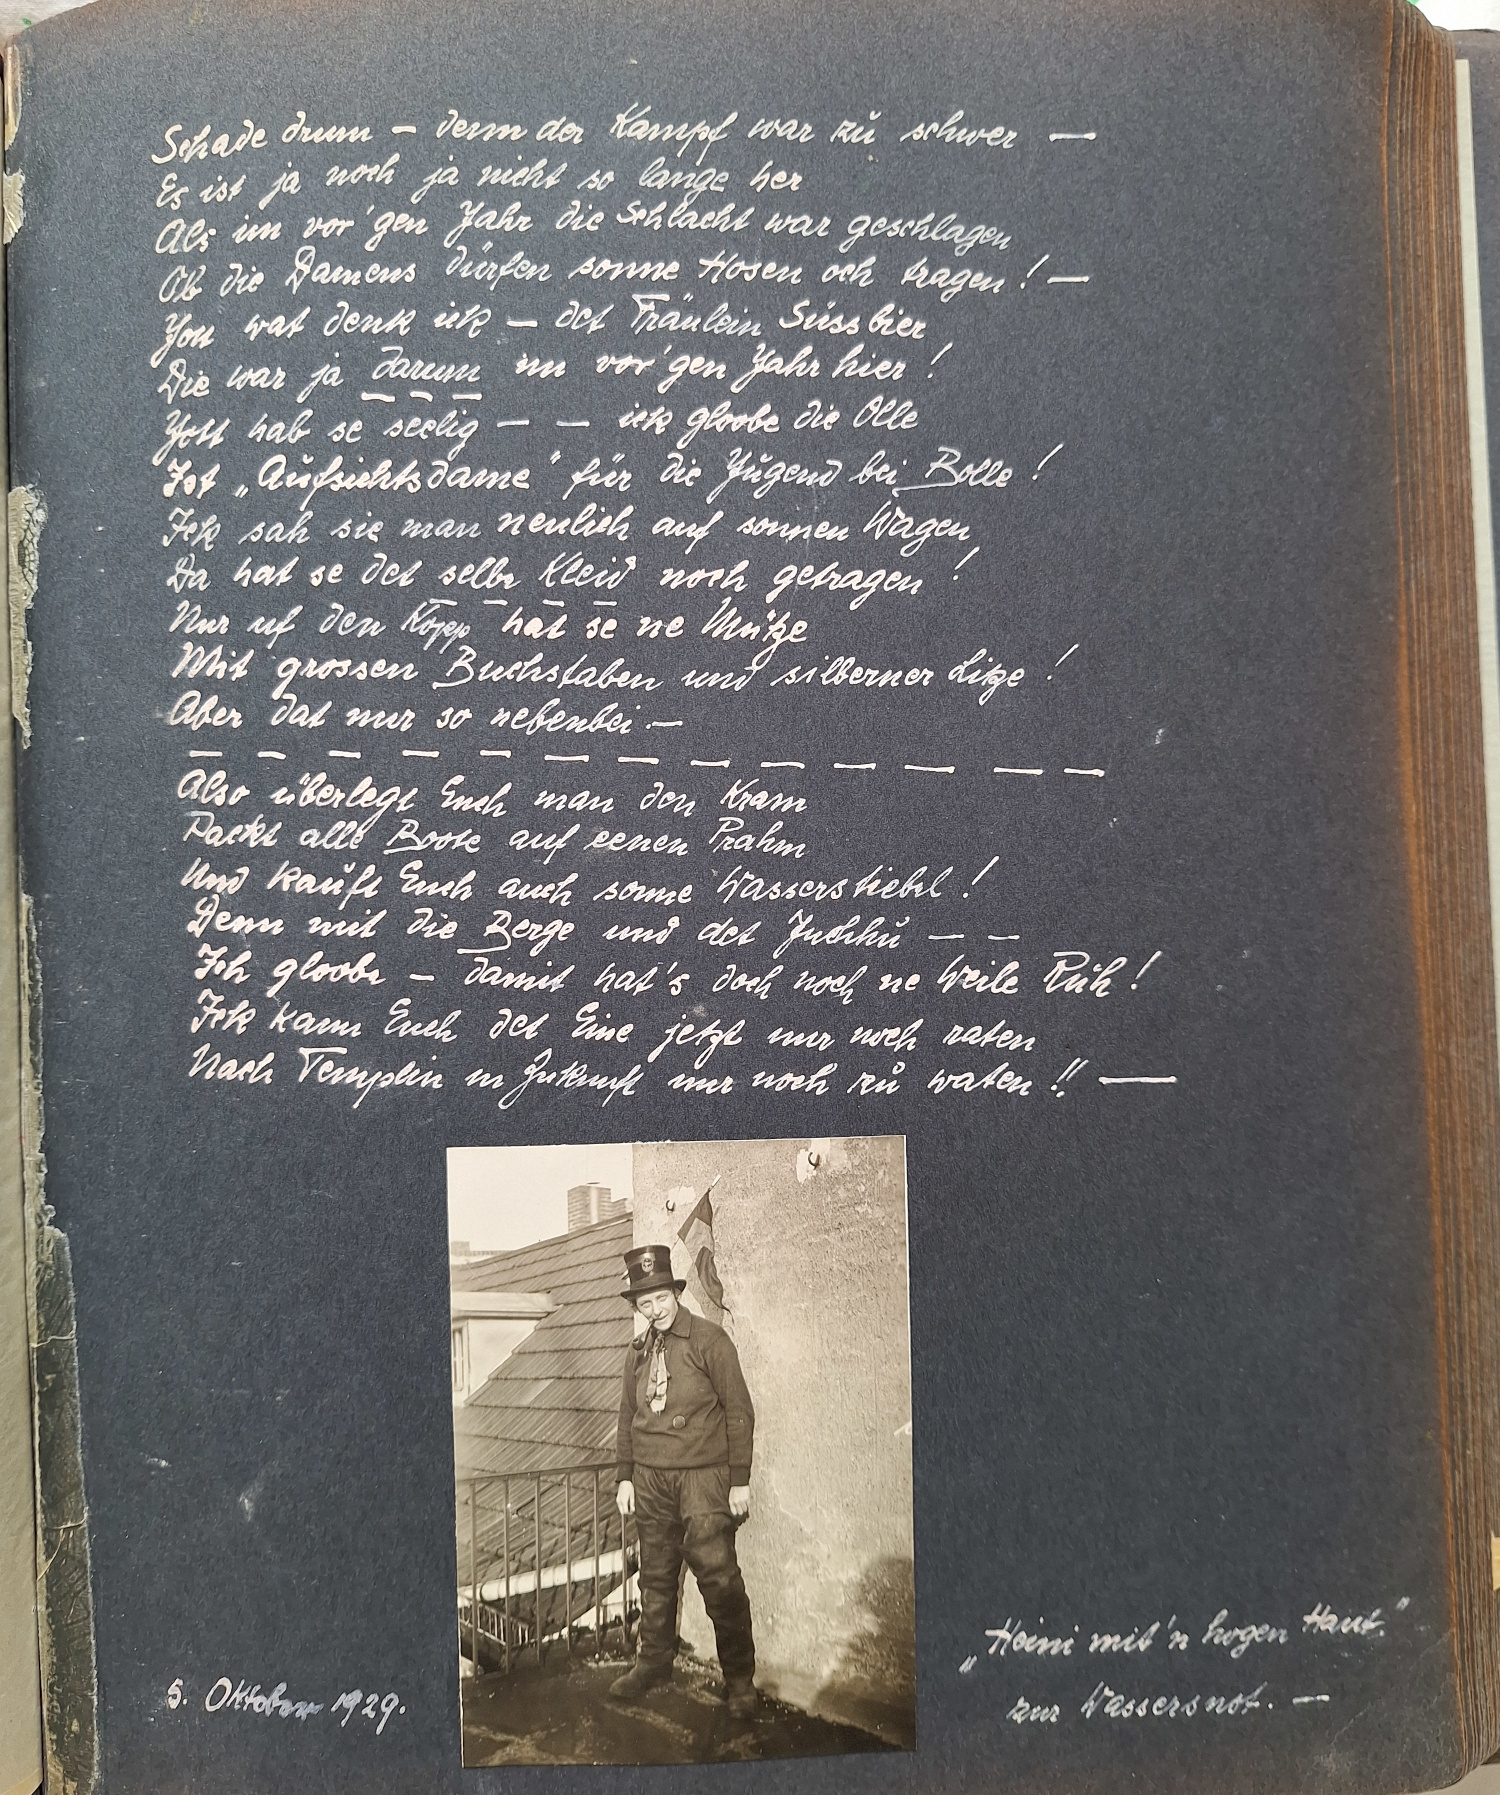 Schade drum — denn der Kampf war zŭ schwer —
Es ist ja noch ja nicht so lange her
Als im vor'gen Jahr die Schlacht war geschlagen
Ob die Damens dürfen sonne Hosen och tragen! —
You wat denk ick — det Fräulein Süssbier
Die war ja darum im vor'gen Jahr hier!
Jott hab se seelig — — ick gloobe die Olle
Ist „Aŭfsichtsdame“ für die Jŭgend bei Bolle!
Ick sah sie man neulich auf sonnen Wagen
Da hat se det selbe Kleid noch getragen!
Nur uf den Kopp hat se ne Mütze
Mit grossen Buchstaben und silberner Litze!
Aber dat nur so nebenbei —
— — — — — — — — — — — — —
Also überlegt Euch man den Kram
Packt alle Boote auf eenen Prahm
Und kaŭft Euch auch sonne Wasserstiebel!
Denn mit die Berge und det Juchhŭ — —
Ich gloobe — damit hat's doch noch ne Weile Rŭh!
Ick kann Euch det Eine jetzt nur noch raten
Nach Templin in Zukunft nur noch zŭ waten!! —
5. Oktober 1929.
„Heini mit'n hogen Haut.“
zur Wassersnot. —